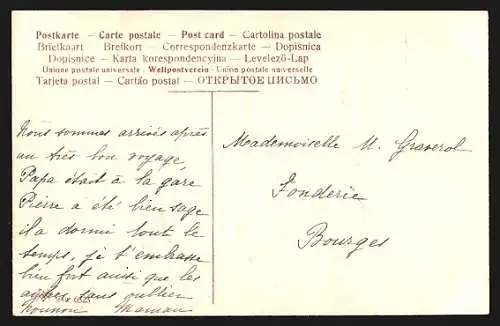 Postkarte – Carte postale – Post card – Cartolina postale
Briefkaart – Brefkort – Correspondenzkarte – Dopisnica
Dopisnice – Karta korespondencyjna – Levelező-Lap
Unione postale universale – Weltpostverein – Union postale universelle
Tarjeta postal – Cartão postal – ОТКРЫТОЕ ПИСЬМО
Nous sommes arrivés après
un très bon voyage,
Papa était à la gare
Pierre a été bien sage
il a dormi tout le
temps, je t'embrasse
bien fort ainsi que les
autres sans oublier
nounou Maman
Mademoiselle M. Graverol
Fonderie
Bourges